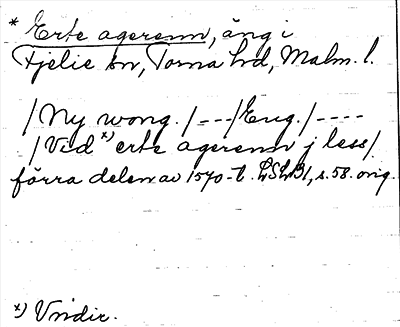 * Erte agerenn, äng i
Fjelie sn, Torna hd, Malm. l.
/Ny wong./---/Eng./----
/Vid x) erte agerenn j less/
förra delen av 1570-t. LSLB1, s. 58. orig.
x) Vndir.